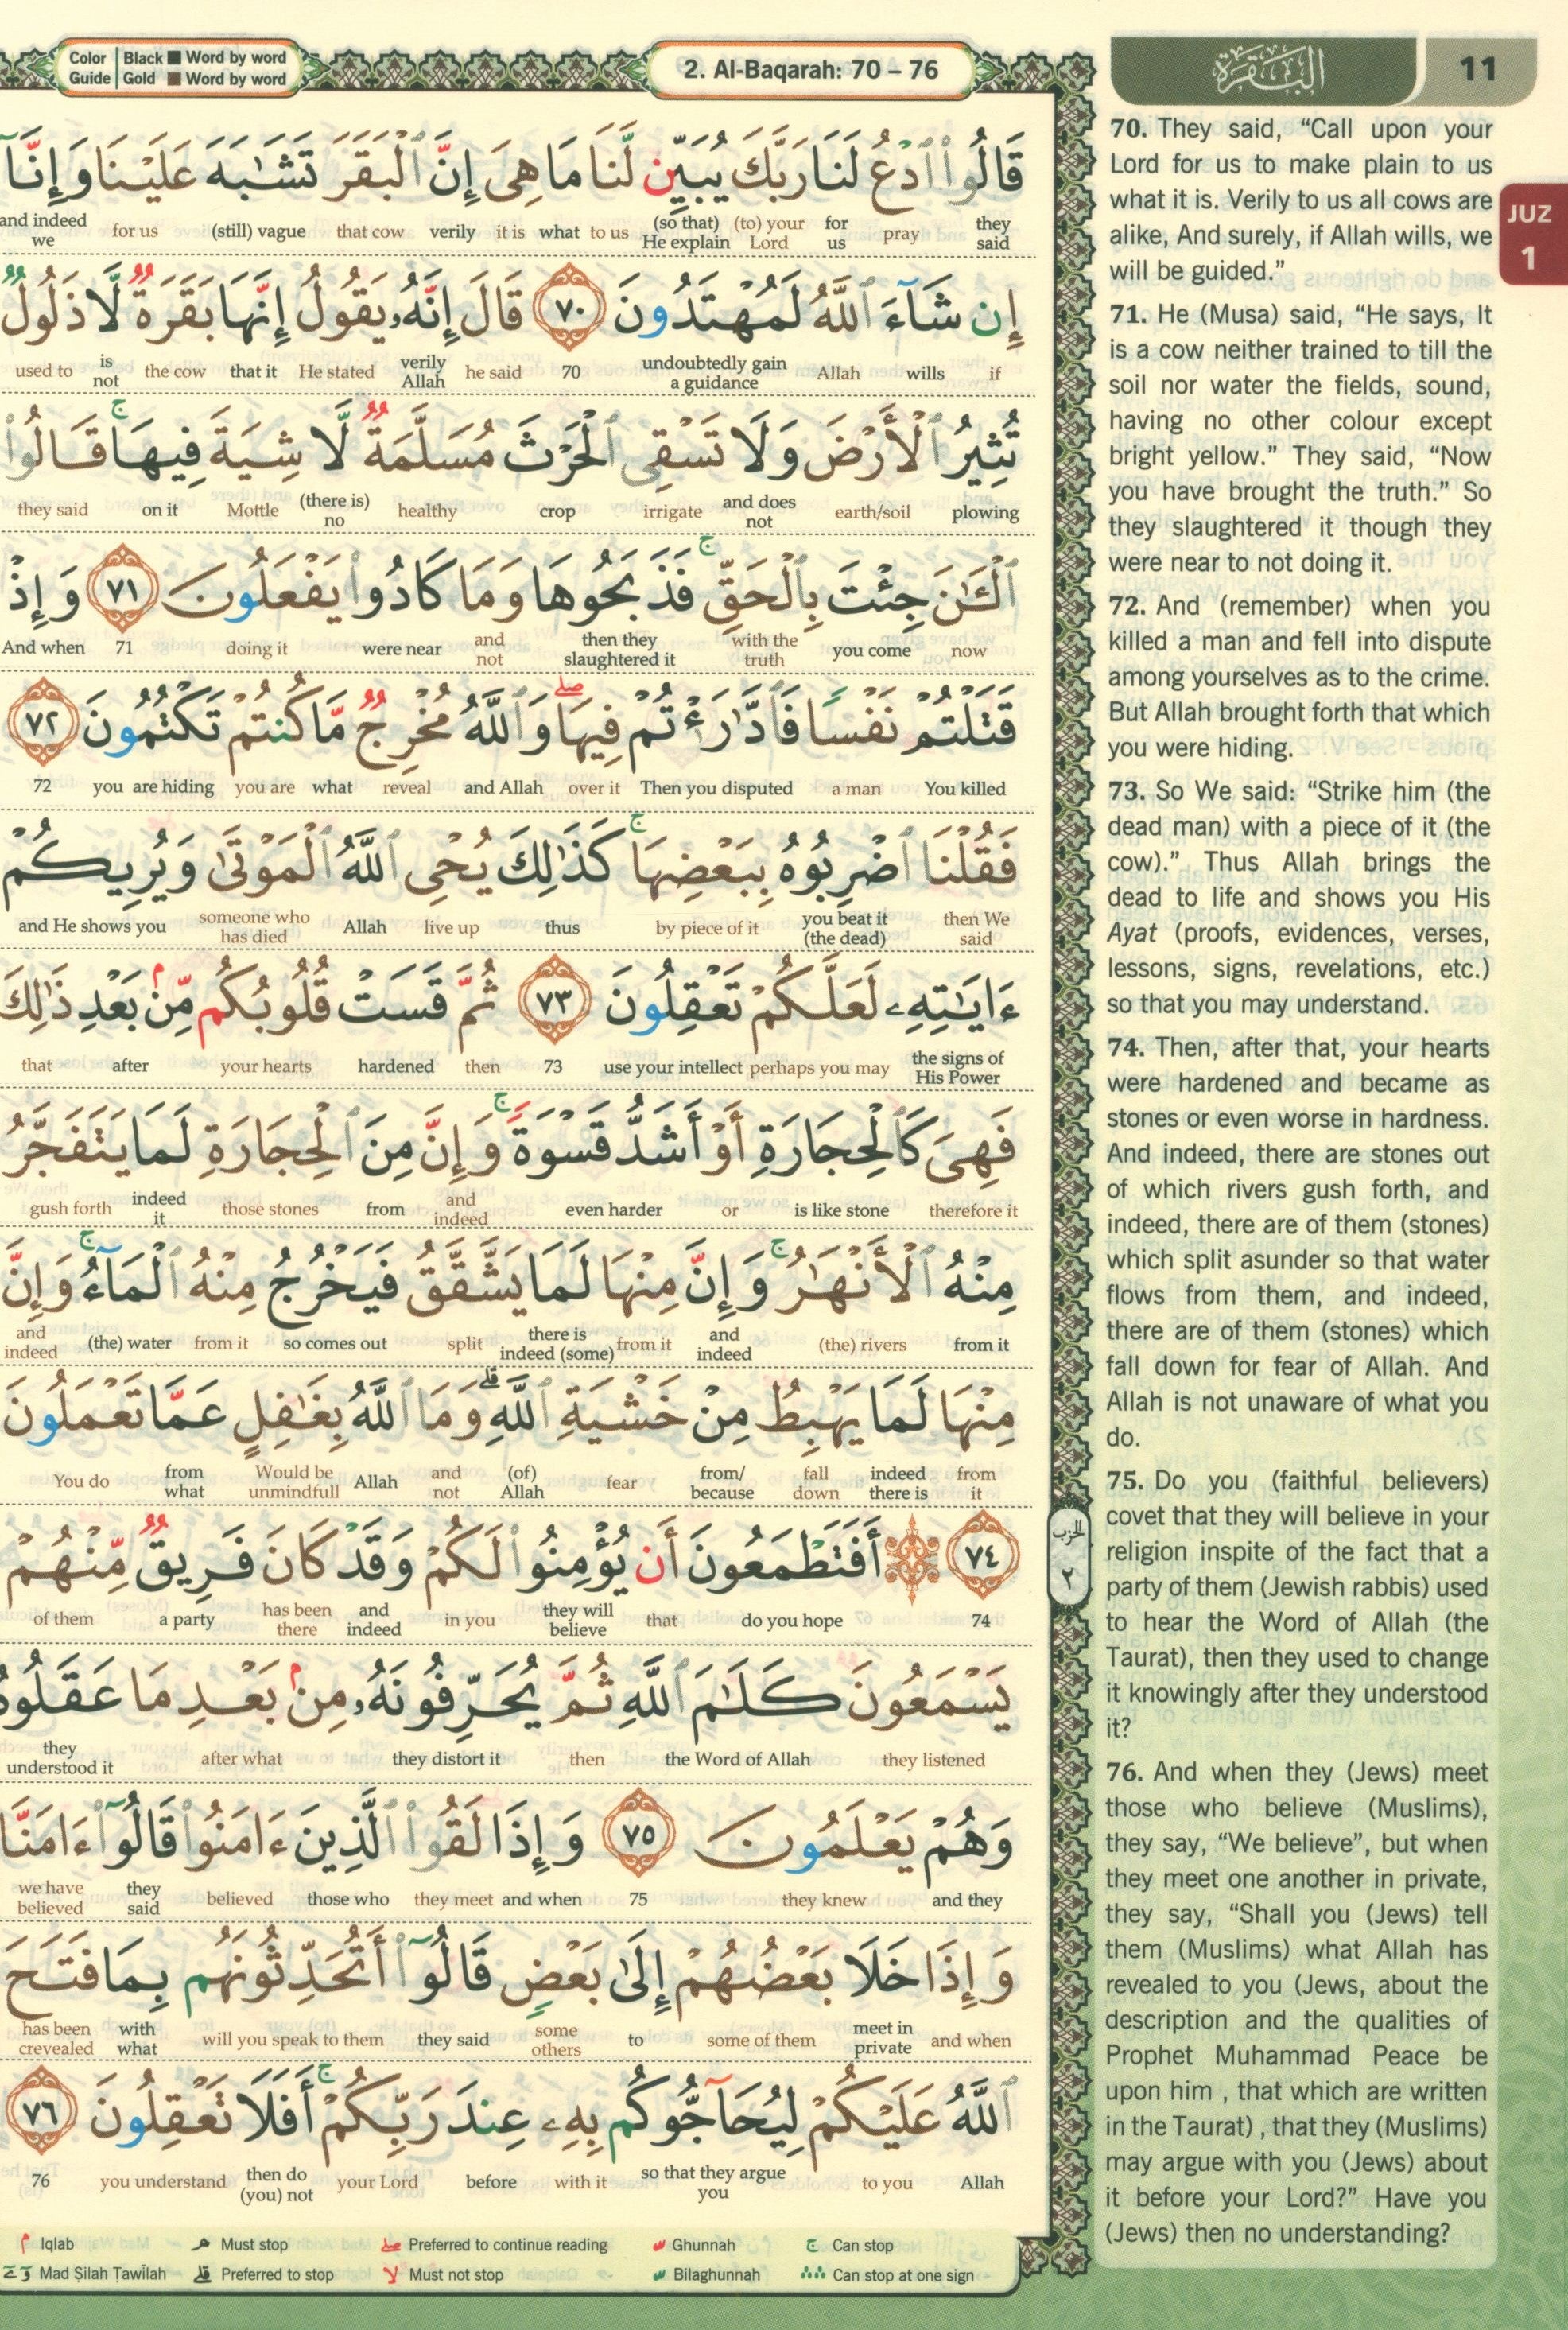 Color Guide
Black ■ Word by word
Gold ■ Word by word
2. Al-Baqarah: 70 – 76
البقرة
11
JUZ
1
قَالُوا۟ ٱدْعُ لَنَا رَبَّكَ يُبَيِّن لَّنَا مَا هِىَ إِنَّ ٱلْبَقَرَ تَشَـٰبَهَ عَلَيْنَا وَإِنَّآ
they said
pray
for us
(to) your Lord
(so that) He explain
to us
what
it is
verily
that cow
(still) vague
for us
and indeed we
إِن شَآءَ ٱللَّهُ لَمُهْتَدُونَ ٧٠ قَالَ إِنَّهُۥ يَقُولُ إِنَّهَا بَقَرَةٌ لَّا ذَلُولٌ
if
wills
Allah
undoubtedly gain a guidance
70
he said
verily Allah
He stated
that it
the cow
is not
used to
تُثِيرُ ٱلْأَرْضَ وَلَا تَسْقِى ٱلْحَرْثَ مُسَلَّمَةٌ لَّا شِيَةَ فِيهَا ۚ قَالُوا۟
plowing
earth/soil
and does not
irrigate
crop
healthy
(there is) no
Mottle
on it
they said
ٱلْـَٔـٰنَ جِئْتَ بِٱلْحَقِّ ۚ فَذَبَحُوهَا وَمَا كَادُوا۟ يَفْعَلُونَ ٧١ وَإِذْ
now
you come
with the truth
then they slaughtered it
and not
were near
doing it
71
And when
قَتَلْتُمْ نَفْسًا فَٱدَّٰرَْٰٔتُمْ فِيهَا ۖ وَٱللَّهُ مُخْرِجٌ مَّا كُنتُمْ تَكْتُمُونَ ٧٢
You killed
a man
Then you disputed
over it
and Allah
reveal
what
you are
you are hiding
72
فَقُلْنَا ٱضْرِبُوهُ بِبَعْضِهَا ۚ كَذَٰلِكَ يُحْىِ ٱللَّهُ ٱلْمَوْتَىٰ وَيُرِيكُمْ
then We said
you beat it (the dead)
by piece of it
thus
live up
Allah
someone who has died
and He shows you
ءَايَـٰتِهِۦ لَعَلَّكُمْ تَعْقِلُونَ ٧٣ ثُمَّ قَسَتْ قُلُوبُكُم مِّنۢ بَعْدِ ذَٰلِكَ
the signs of His Power
perhaps you may
use your intellect
73
then
hardened
your hearts
after
that
فَهِىَ كَٱلْحِجَارَةِ أَوْ أَشَدُّ قَسْوَةً ۚ وَإِنَّ مِنَ ٱلْحِجَارَةِ لَمَا يَتَفَجَّرُ
therefore it
is like stone
or
even harder
and indeed
from
those stones
indeed it
gush forth
مِنْهُ ٱلْأَنْهَـٰرُ ۚ وَإِنَّ مِنْهَا لَمَا يَشَّقَّقُ فَيَخْرُجُ مِنْهُ ٱلْمَآءُ ۚ وَإِنَّ
from it
(the) rivers
and indeed
from it
there is indeed (some)
split
so comes out
from it
(the) water
and indeed
مِنْهَا لَمَا يَهْبِطُ مِنْ خَشْيَةِ ٱللَّهِ ۗ وَمَا ٱللَّهُ بِغَـٰفِلٍ عَمَّا تَعْمَلُونَ
from it
indeed there is
fall down
from/ because
fear
(of) Allah
and not
Allah
Would be unmindfull
from what
You do
٧٤ ۞ أَفَتَطْمَعُونَ أَن يُؤْمِنُوا۟ لَكُمْ وَقَدْ كَانَ فَرِيقٌ مِّنْهُمْ
74
do you hope
that
they will believe
in you
and indeed
has been there
a party
of them
الحزب ٢
يَسْمَعُونَ كَلَـٰمَ ٱللَّهِ ثُمَّ يُحَرِّفُونَهُۥ مِنۢ بَعْدِ مَا عَقَلُوهُ
they listened
the Word of Allah
then
they distort it
after what
they understood it
وَهُمْ يَعْلَمُونَ ٧٥ وَإِذَا لَقُوا۟ ٱلَّذِينَ ءَامَنُوا۟ قَالُوٓا۟ ءَامَنَّا
and they
they knew
75
and when
they meet
those who
believed
they said
we have believed
وَإِذَا خَلَا بَعْضُهُمْ إِلَىٰ بَعْضٍ قَالُوٓا۟ أَتُحَدِّثُونَهُم بِمَا فَتَحَ
and when
meet in private
some of them
to
some others
they said
will you speak to them
with what
has been crevealed
ٱللَّهُ عَلَيْكُمْ لِيُحَآجُّوكُم بِهِۦ عِندَ رَبِّكُمْ ۚ أَفَلَا تَعْقِلُونَ ٧٦
Allah
to you
so that they argue you
with it
before
your Lord
then do (you) not
you understand
76
Iqlab
Must stop
Preferred to continue reading
Ghunnah
Can stop
Mad Ṣilah Ṭawīlah
Preferred to stop
Must not stop
Bilaghunnah
Can stop at one sign
70. They said, “Call upon your
Lord for us to make plain to us
what it is. Verily to us all cows are
alike, And surely, if Allah wills, we
will be guided.”
71. He (Musa) said, “He says, It
is a cow neither trained to till the
soil nor water the fields, sound,
having no other colour except
bright yellow.” They said, “Now
you have brought the truth.” So
they slaughtered it though they
were near to not doing it.
72. And (remember) when you
killed a man and fell into dispute
among yourselves as to the crime.
But Allah brought forth that which
you were hiding.
73. So We said: “Strike him (the
dead man) with a piece of it (the
cow).” Thus Allah brings the
dead to life and shows you His
Ayat (proofs, evidences, verses,
lessons, signs, revelations, etc.)
so that you may understand.
74. Then, after that, your hearts
were hardened and became as
stones or even worse in hardness.
And indeed, there are stones out
of which rivers gush forth, and
indeed, there are of them (stones)
which split asunder so that water
flows from them, and indeed,
there are of them (stones) which
fall down for fear of Allah. And
Allah is not unaware of what you
do.
75. Do you (faithful believers)
covet that they will believe in your
religion inspite of the fact that a
party of them (Jewish rabbis) used
to hear the Word of Allah (the
Taurat), then they used to change
it knowingly after they understood
it?
76. And when they (Jews) meet
those who believe (Muslims),
they say, “We believe”, but when
they meet one another in private,
they say, “Shall you (Jews) tell
them (Muslims) what Allah has
revealed to you (Jews, about the
description and the qualities of
Prophet Muhammad Peace be
upon him , that which are written
in the Taurat) , that they (Muslims)
may argue with you (Jews) about
it before your Lord?” Have you
(Jews) then no understanding?